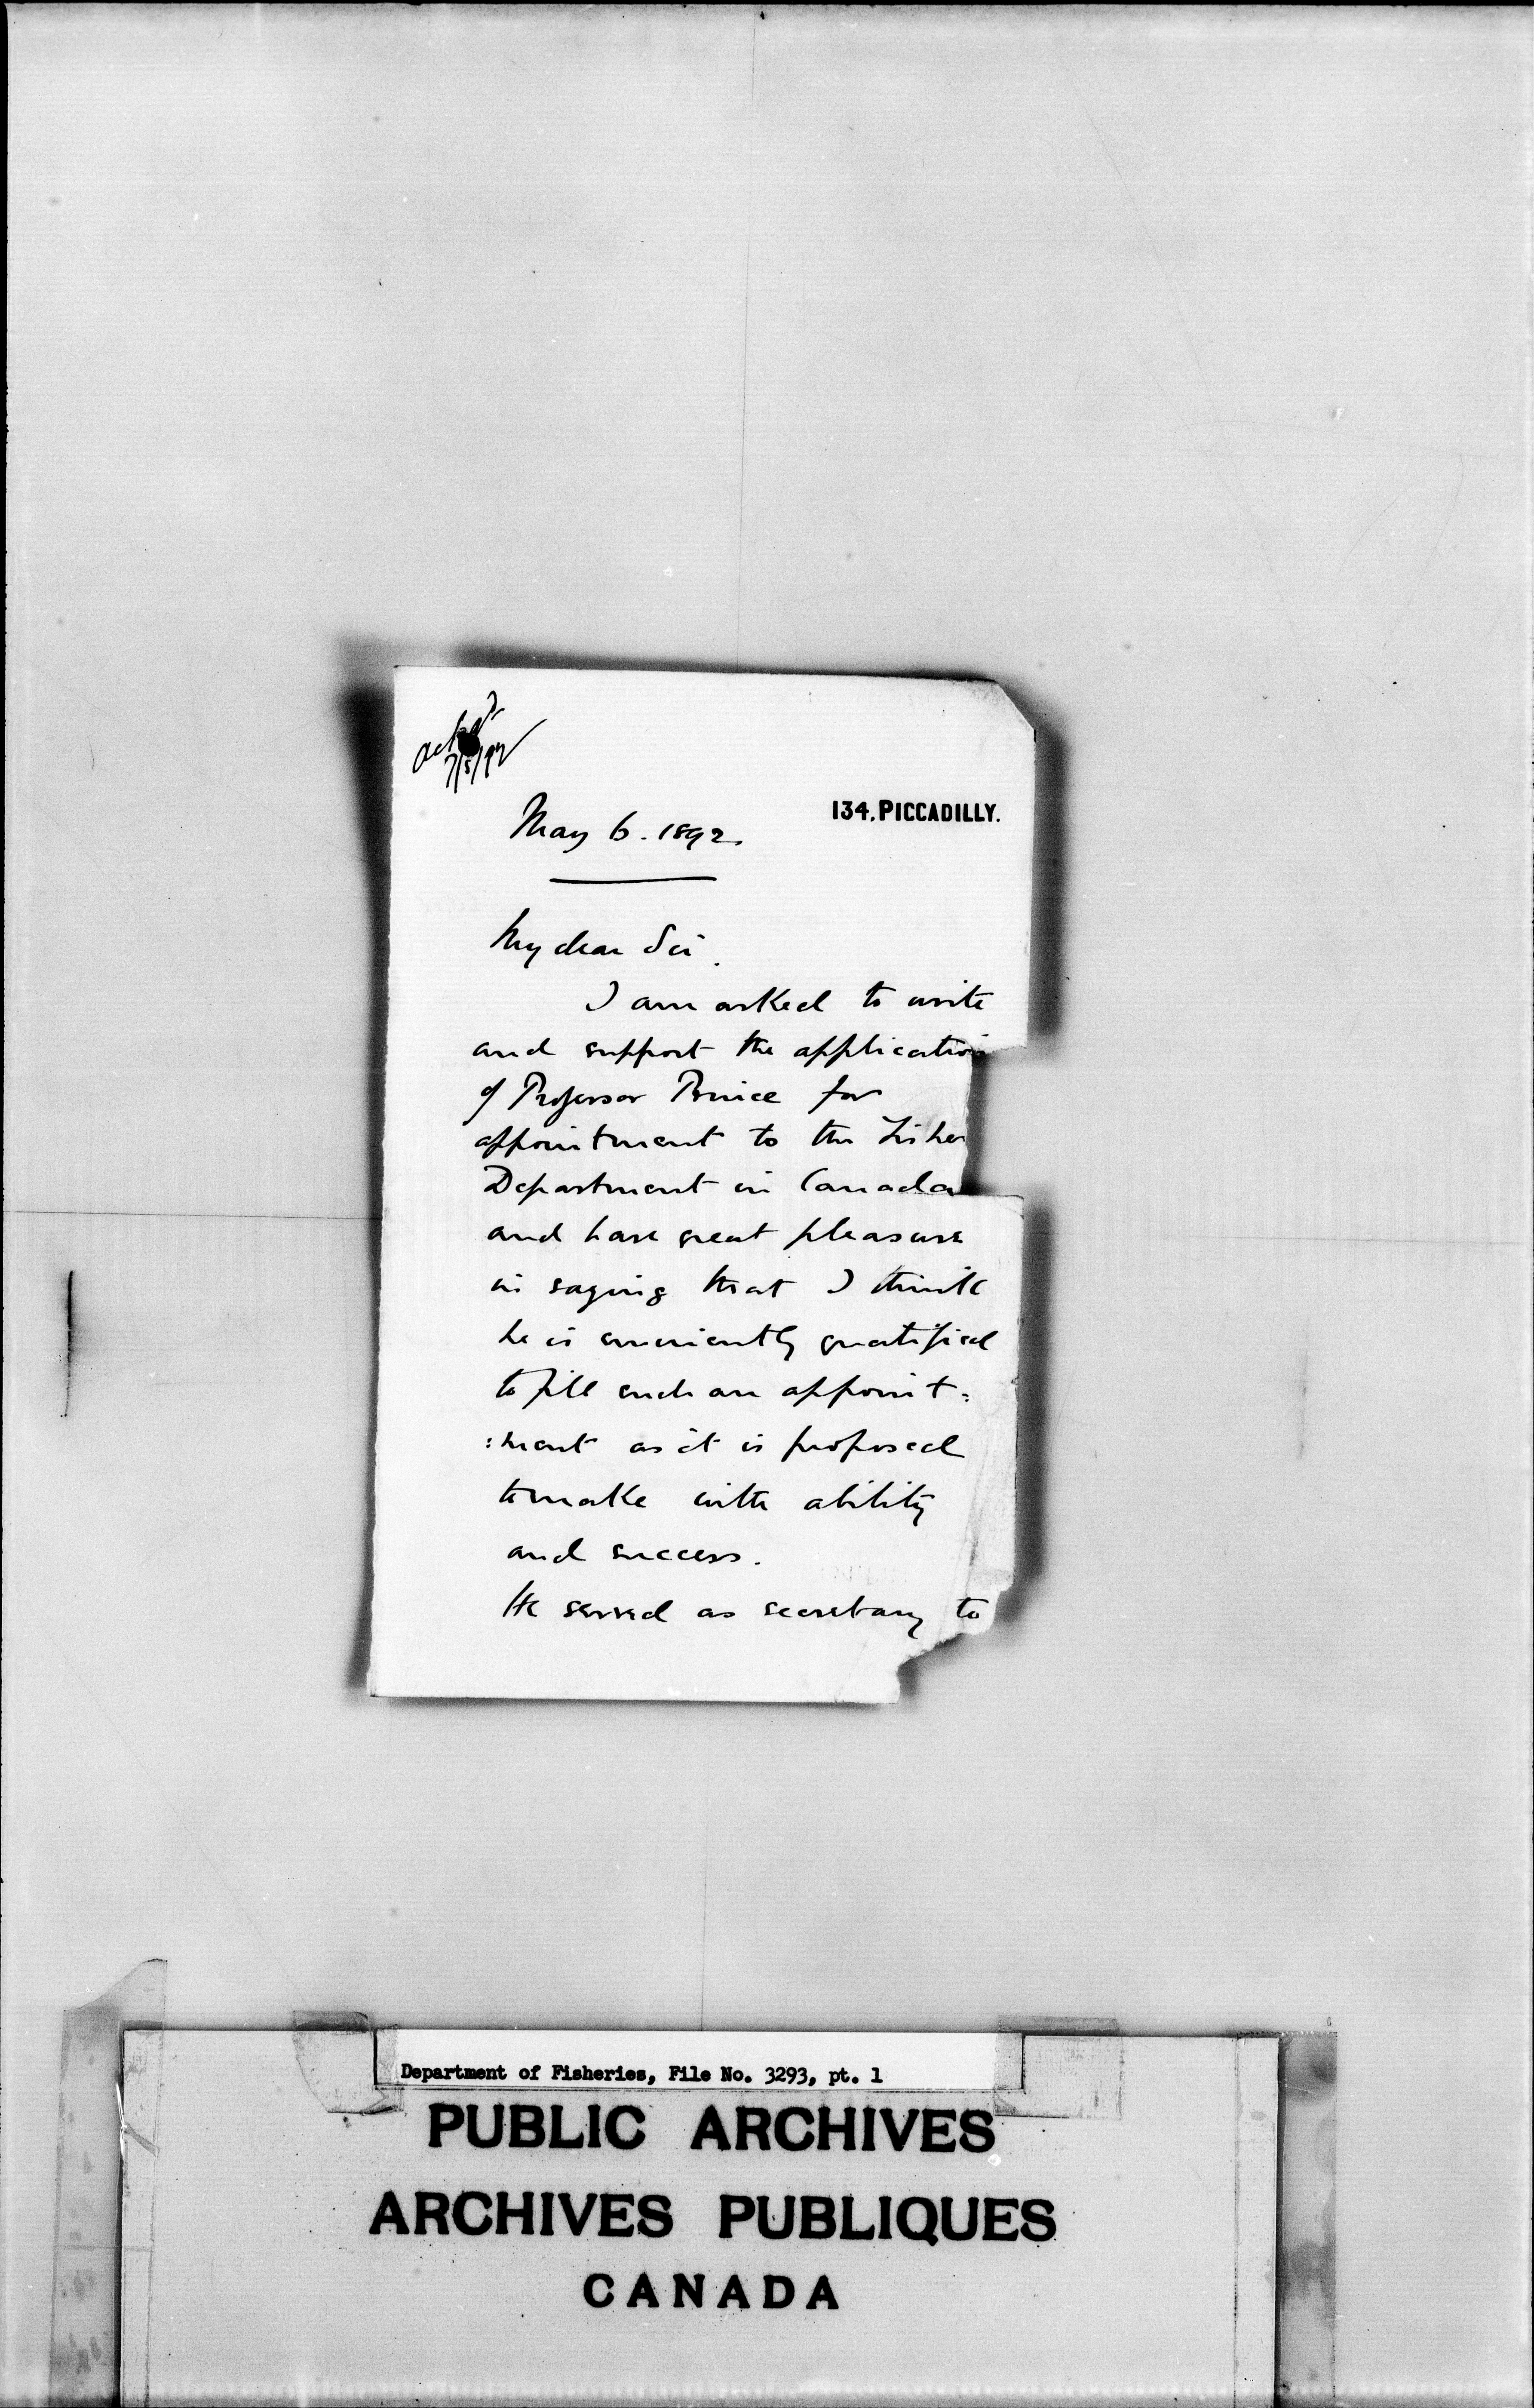 ackd
7/5/92
134, PICCADILLY.
May 6. 1892.
My dear Sir.
I am asked to write
and support the application
of Professor Prince for
appointment to the Fisher
Department in Canada
and have great pleasure
in saying that I think
he is eminently qualified
to fill such an appoint=
:ment as it is proposed
to make with ability
and success.
He served as secretary to
Department of Fisheries, File No. 3293, pt. 1
PUBLIC ARCHIVES
ARCHIVES PUBLIQUES
CANADA